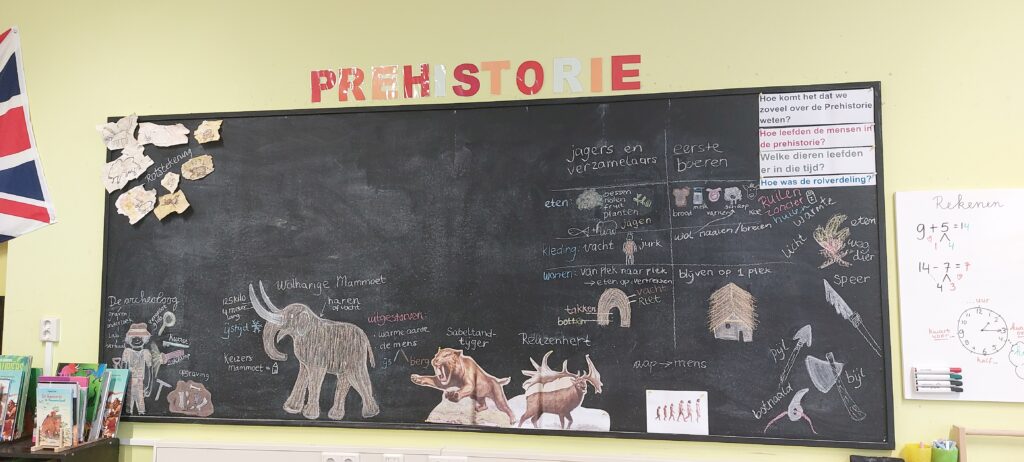 PREHISTORIE
Hoe komt het dat we
zoveel over de Prehistorie
weten?
Hoe leefden de mensen in
de prehistorie?
Welke dieren leefden
er in die tijd?
Hoe was de rolverdeling?
Rotstekening
jagers en
verzamelaars
eerste
boeren
eten:
bessen
noten
fruit
planten
jagen
brood
melk
varken
Ruilen
zonder
huis
warmte
licht
eten
weg
dier
kleding: vacht
jurk
wol naaien/breien
wonen: van plek naar plek
→ eten op, vertrekken
blijven op 1 plek
takken
botten
vacht
Riet
De archeoloog
opgraving
Wolharige Mammoet
haren
of vacht
ijstijd
Keizers
mammoet
uitgestorven:
warme aarde
de mens
ijs
berg
Sabeltand-
tijger
Reuzenhert
aap → mens
speer
pijl
bijl
botnaald
Rekenen
9+5=14
1 4
14-7=7
4 3
uur
kwart
voor
half